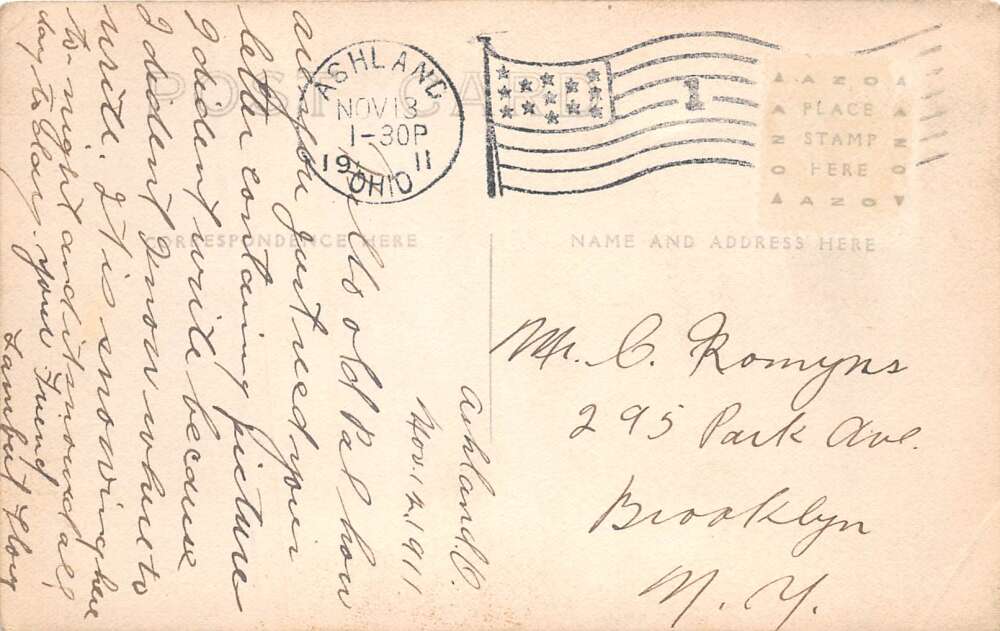 POST CARD
ASHLAND
NOV 13
1-30P
1911
OHIO
1
AZO
PLACE
STAMP
HERE
AZO
CORRESPONDENCE HERE
NAME AND ADDRESS HERE
Ashland O.
Nov. 12, 1911
Hello old Pal how
are you just recd your
letter containing picture
I dident write because
I dident know where to
write. It is snowing here
to-night and it snowed all
day to-day. your Friend
Lambert Flory
Mr. C. Romyns
295 Park Ave.
Brooklyn
N. Y.